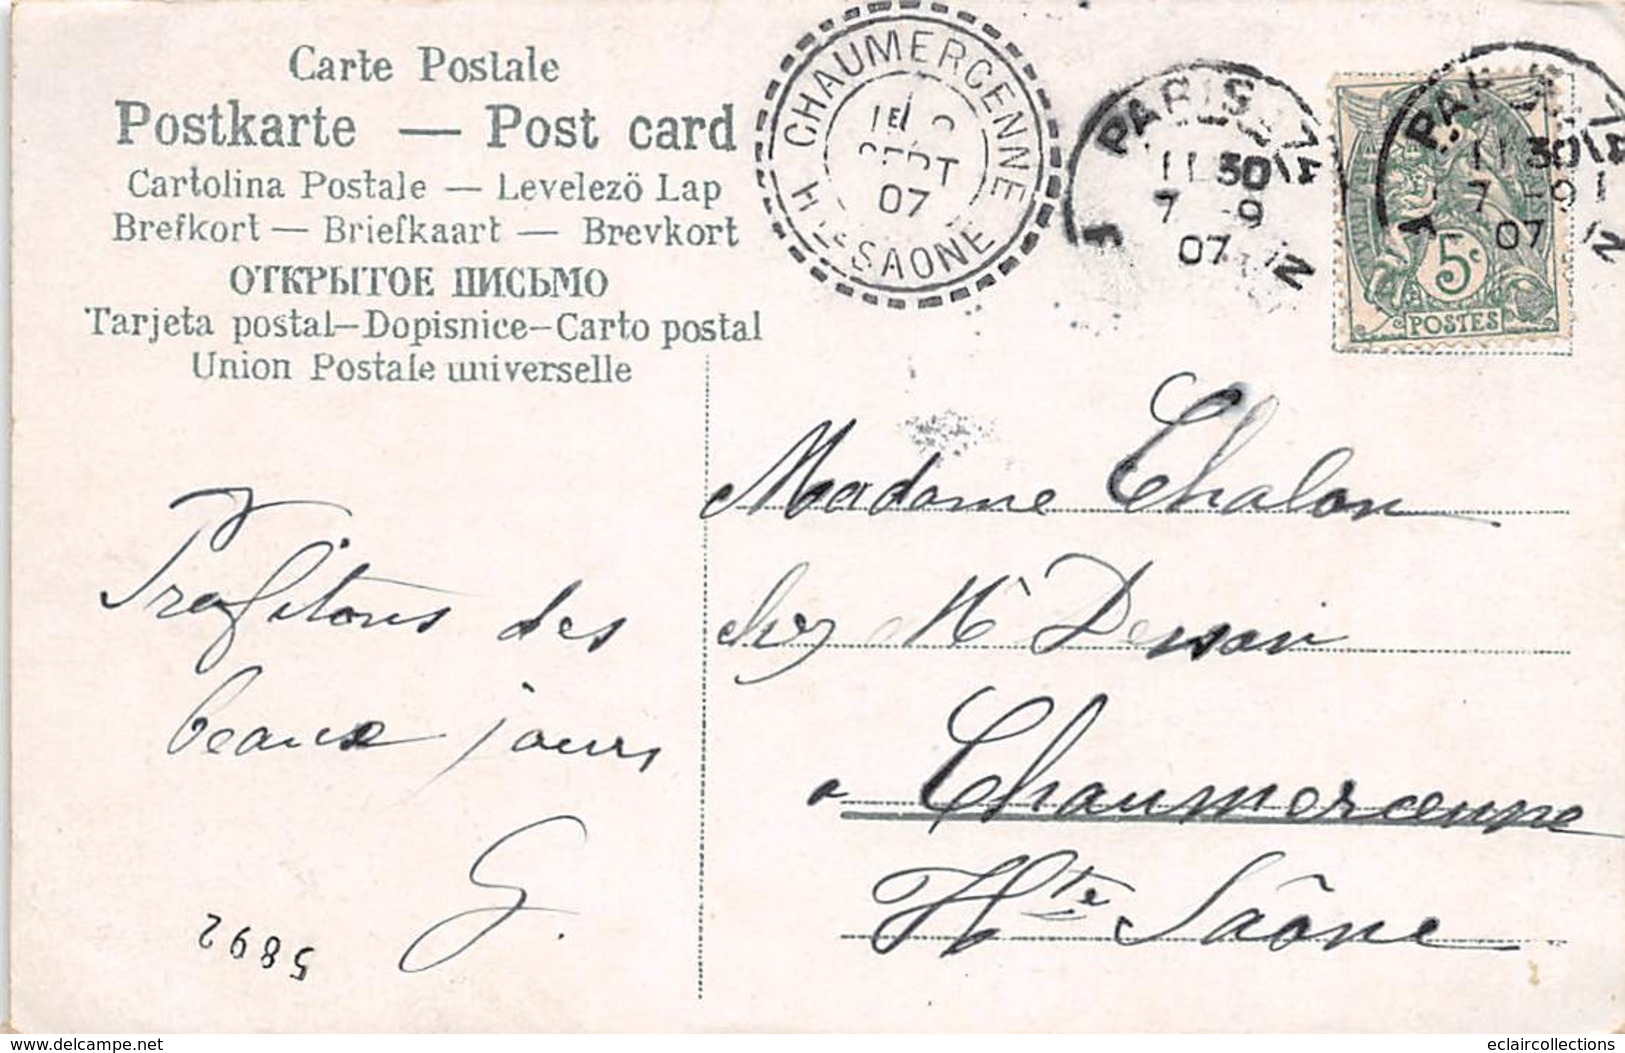 Carte Postale
Postkarte — Post card
Cartolina Postale — Levelezö Lap
Brefkort — Briefkaart — Brevkort
ОТКРЫТОЕ ПИСЬМО
Tarjeta postal—Dopisnice—Carto postal
Union Postale universelle
CHAUMERCENNE
SEPT
07
HTE-SAONE
PARIS 74
11 30
7 -9
07
PARIS 74
11 30
7 -9
07
5c
POSTES
Madame Chalon
chez Mr
à Chaumercenne
Hte Saône
Profitons des
beaux jours
G.
5892
delcampe.net
eclaircollections